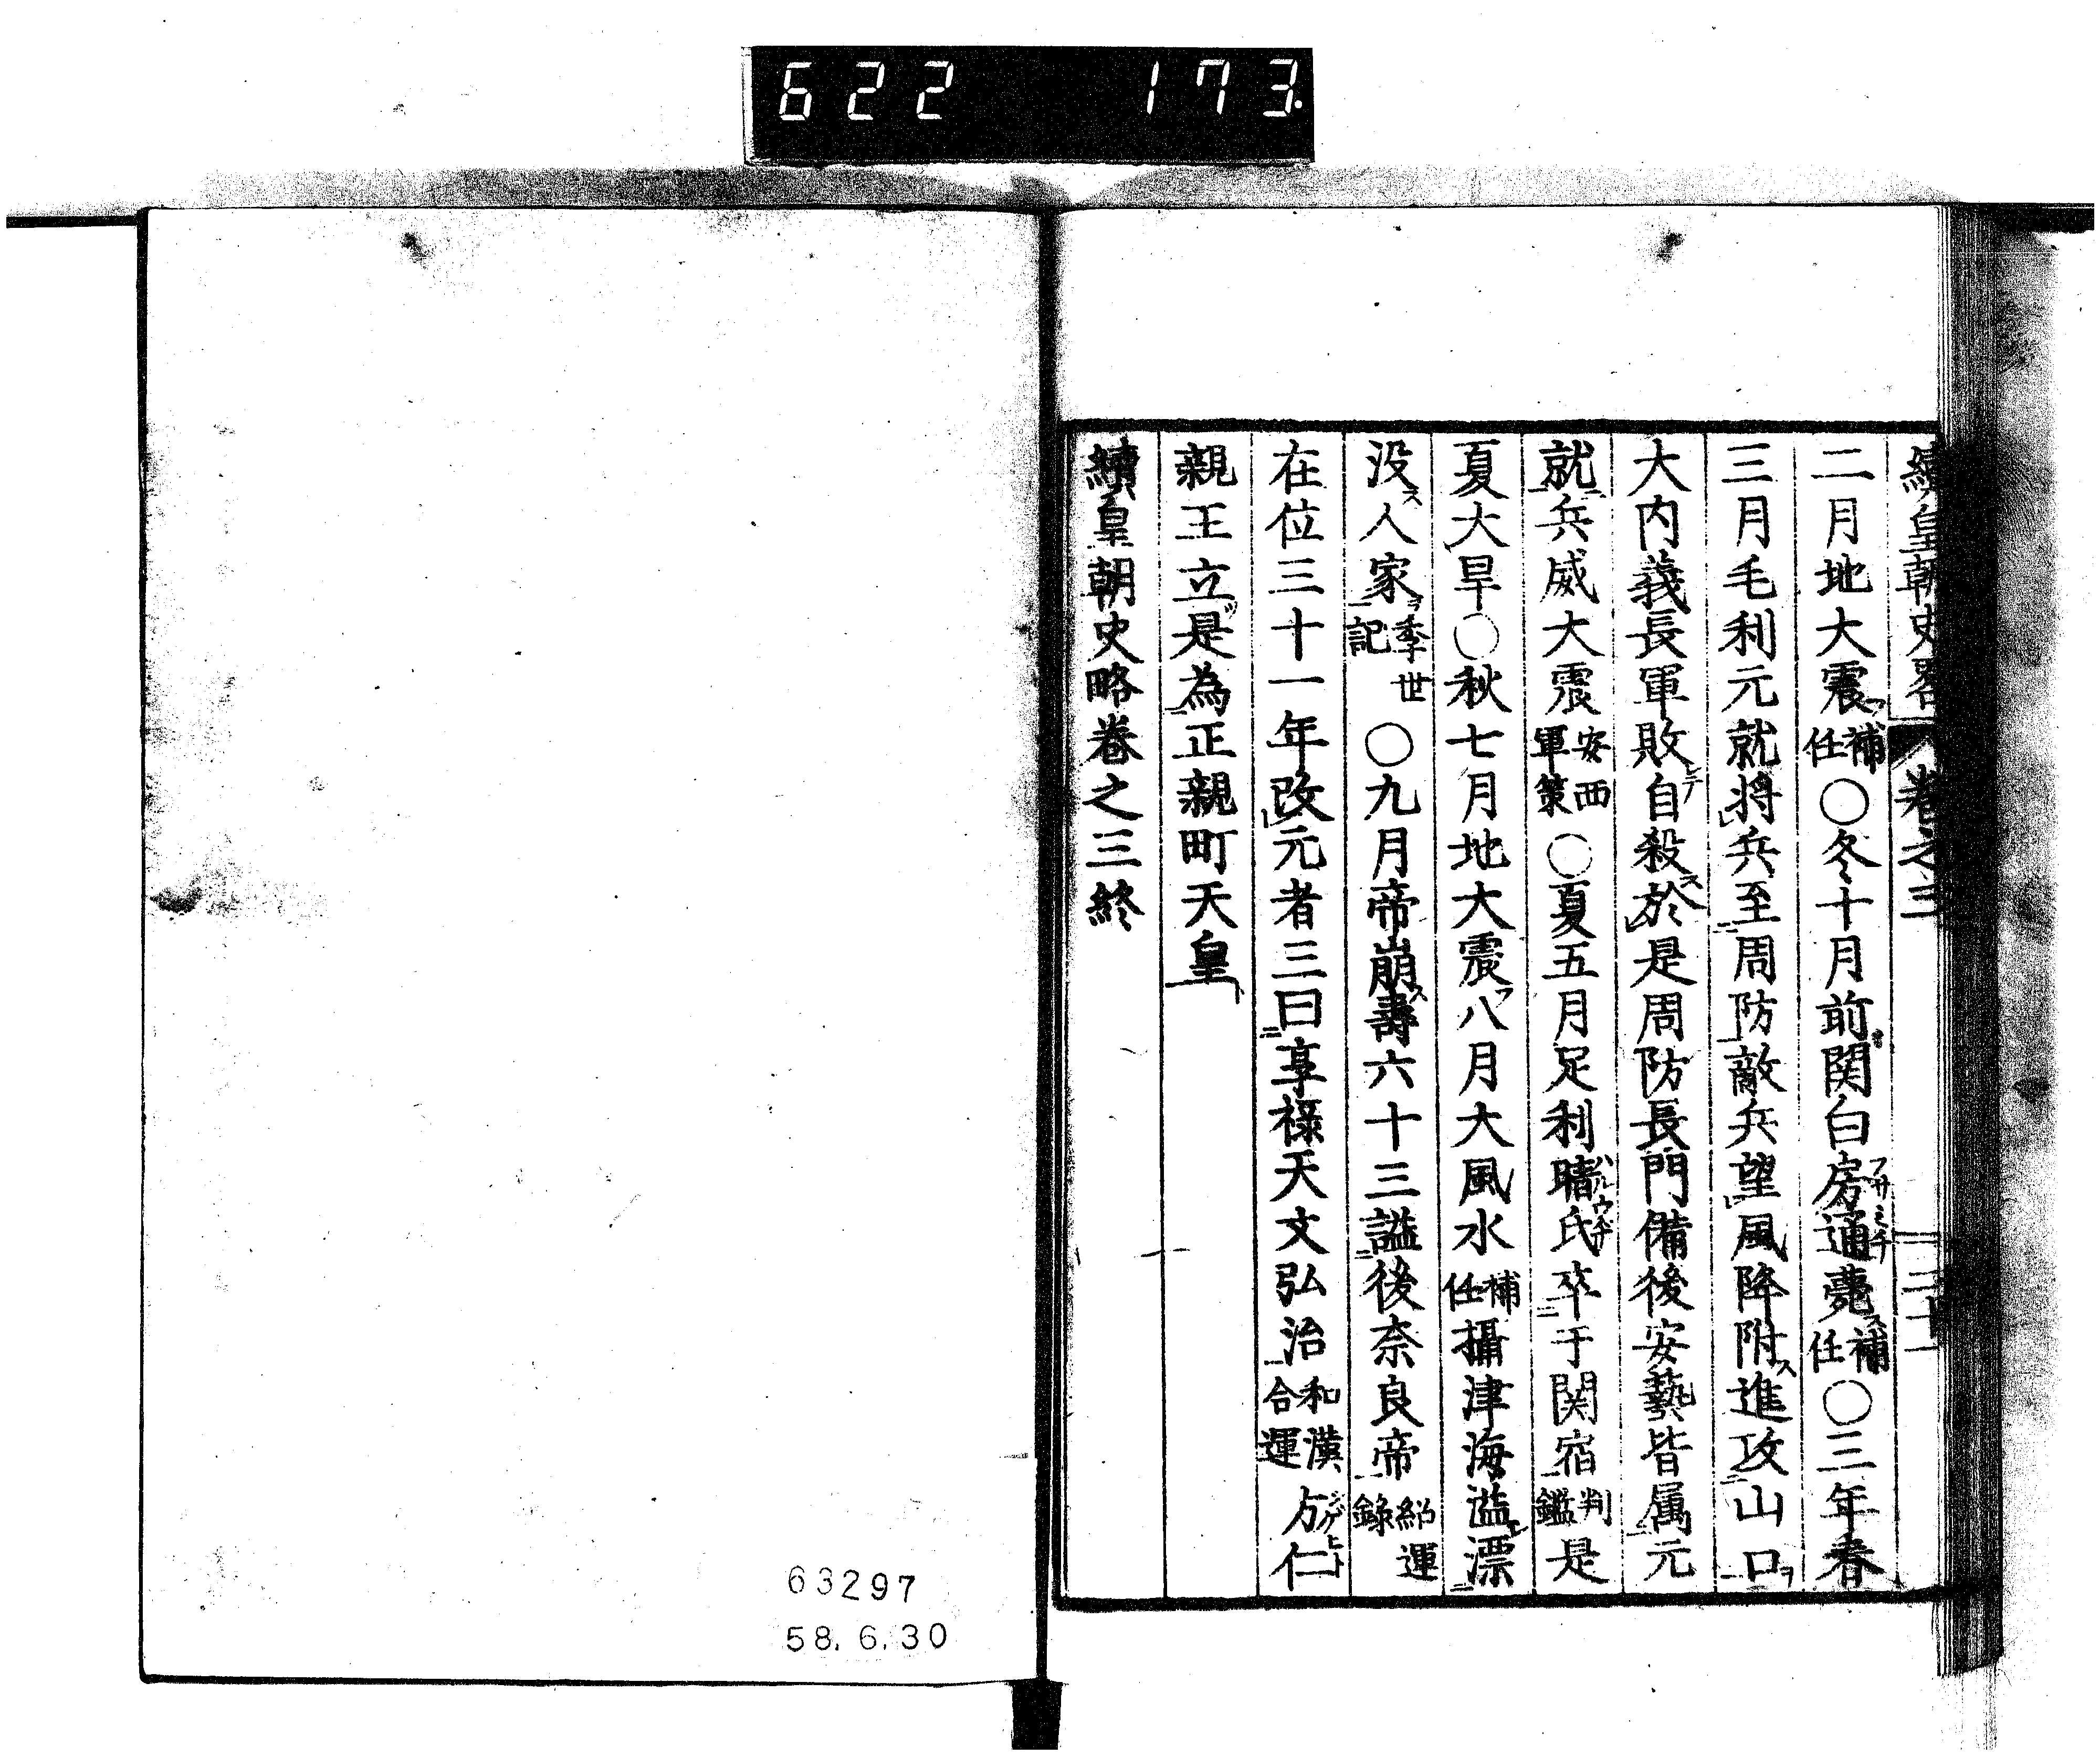 622 173.
續皇朝史畧 卷之三
二月地大震補任〇冬十月前関白房通薨補任〇三年春
三月毛利元就将兵至周防敵兵望風降附進攻山口
大内義長軍敗自殺於是周防長門備後安藝皆属元
就兵威大震安西軍策〇夏五月足利晴氏卒于関宿判鑑是
夏大旱〇秋七月地大震八月大風水補任攝津海溢漂
没人家季世記〇九月帝崩壽六十三謚後奈良帝紹運録
在位三十一年改元者三曰享禄天文弘治和漢合運方仁
親王立是為正親町天皇
續皇朝史略卷之三終
63297
58.6.30